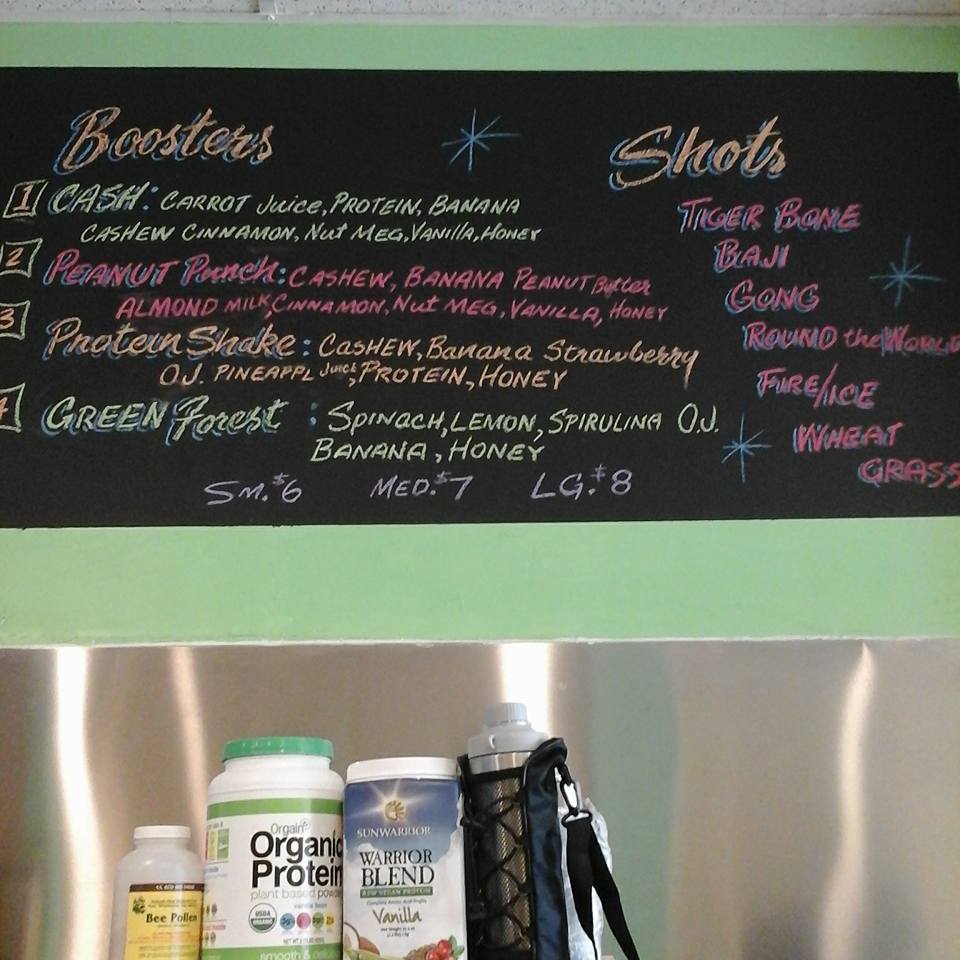 Boosters
1 CASH: CARROT Juice, PROTEIN, BANANA
CASHEW CINNAMON, Nut MEG, Vanilla, HONEY
2 PEANUT Punch: CASHEW, BANANA PEANUT Butter
ALMOND MILK, CINNAMON, Nut MEG, VANILLA, HONEY
3 Protein Shake: CASHEW, Banana Strawberry
O.J. PINEAPPL Juice, PROTEIN, HONEY
4 GREEN Forest : SPINACH, LEMON, SPIRULINA O.J.
BANANA, HONEY
SM. $6 MED. $7 LG. $8
Shots
TIGER BONE
BAJI
GONG
ROUND the WORLD
FIRE/ICE
WHEAT
GRASS
Bee Pollen
Orgain
Organic
Protein
plant based powder
vanilla bean
USDA
ORGANIC
smooth &
SUNWARRIOR
WARRIOR
BLEND
RAW VEGAN PROTEIN
Vanilla